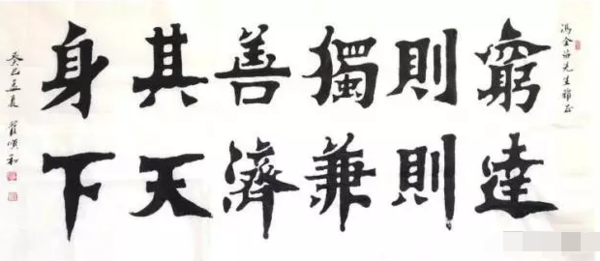 馮金先生雅正
窮則獨善其身
達則兼濟天下
癸巳孟夏